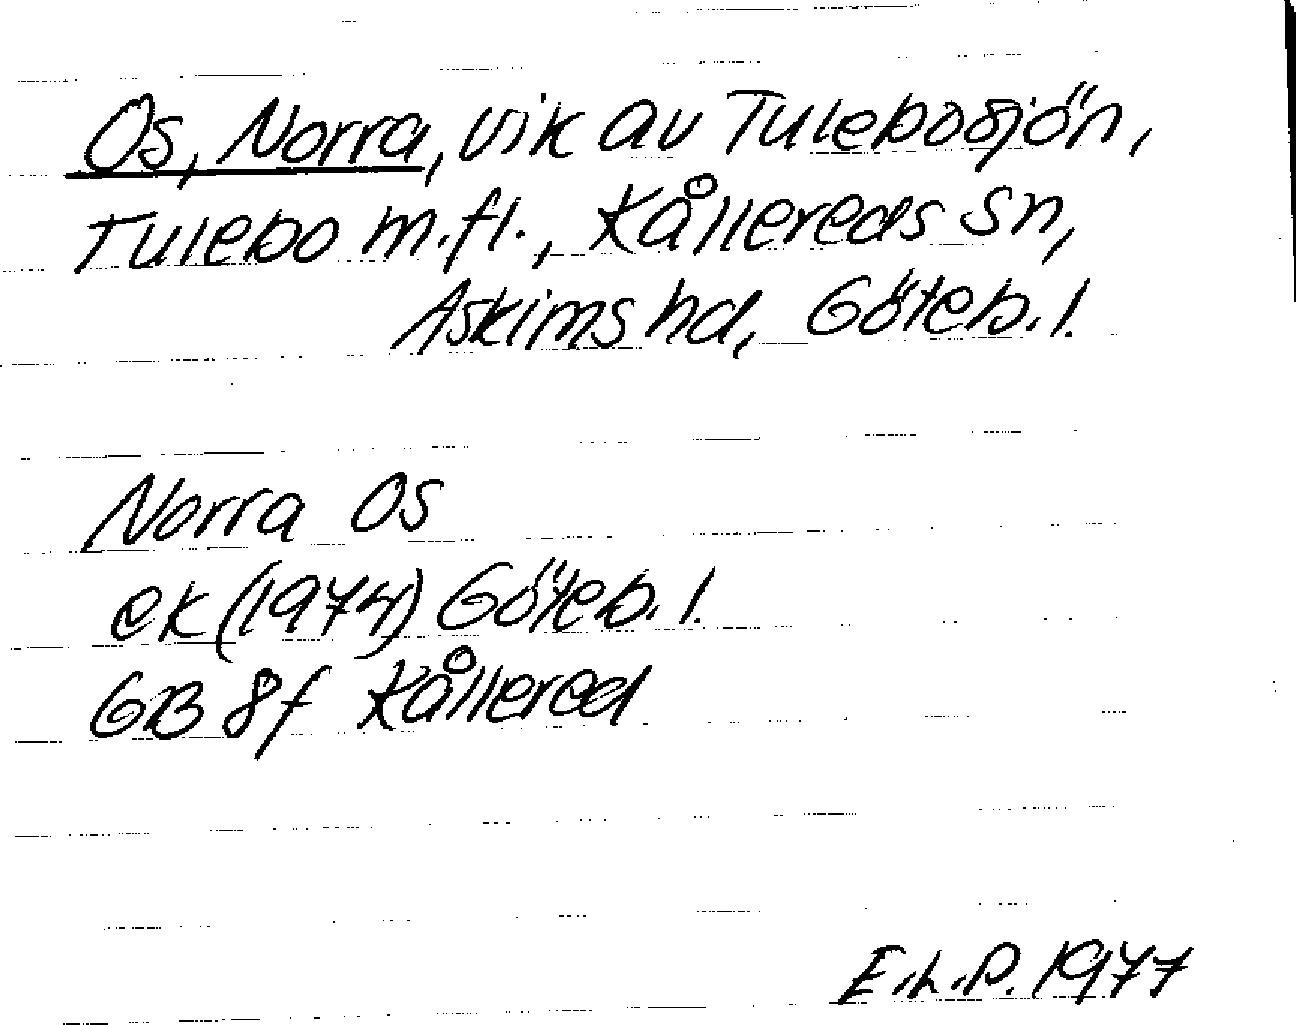 Os, Norra, vik av Tulebosjön,
Tulebo m.fl., Kållereds sn,
Askims hd, Göteb. l.
Norra Os
ek (1974) Göteb. l.
GB 8f Kållered
E.L.P. 1977